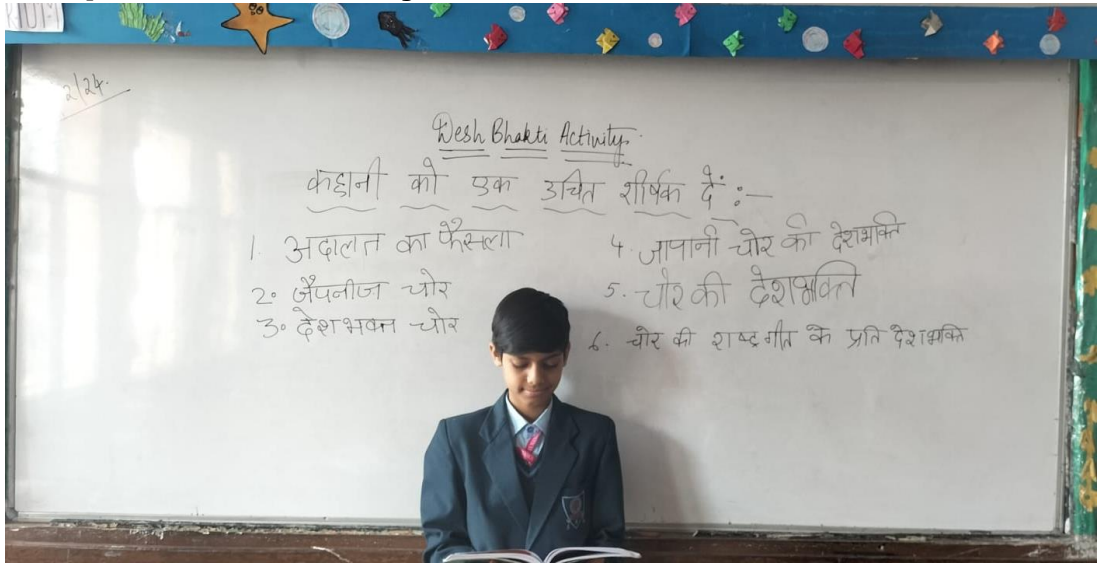 2/24.
Desh Bhakti Activity.
कहानी को एक उचित शीर्षक दें :-
1. अदालत का फैसला
2. जैपनीज चोर
3. देशभक्त चोर
4. जापानी चोर की देशभक्ति
5. चोर की देशभक्ति
6. चोर की राष्ट्रगीत के प्रति देशभक्ति